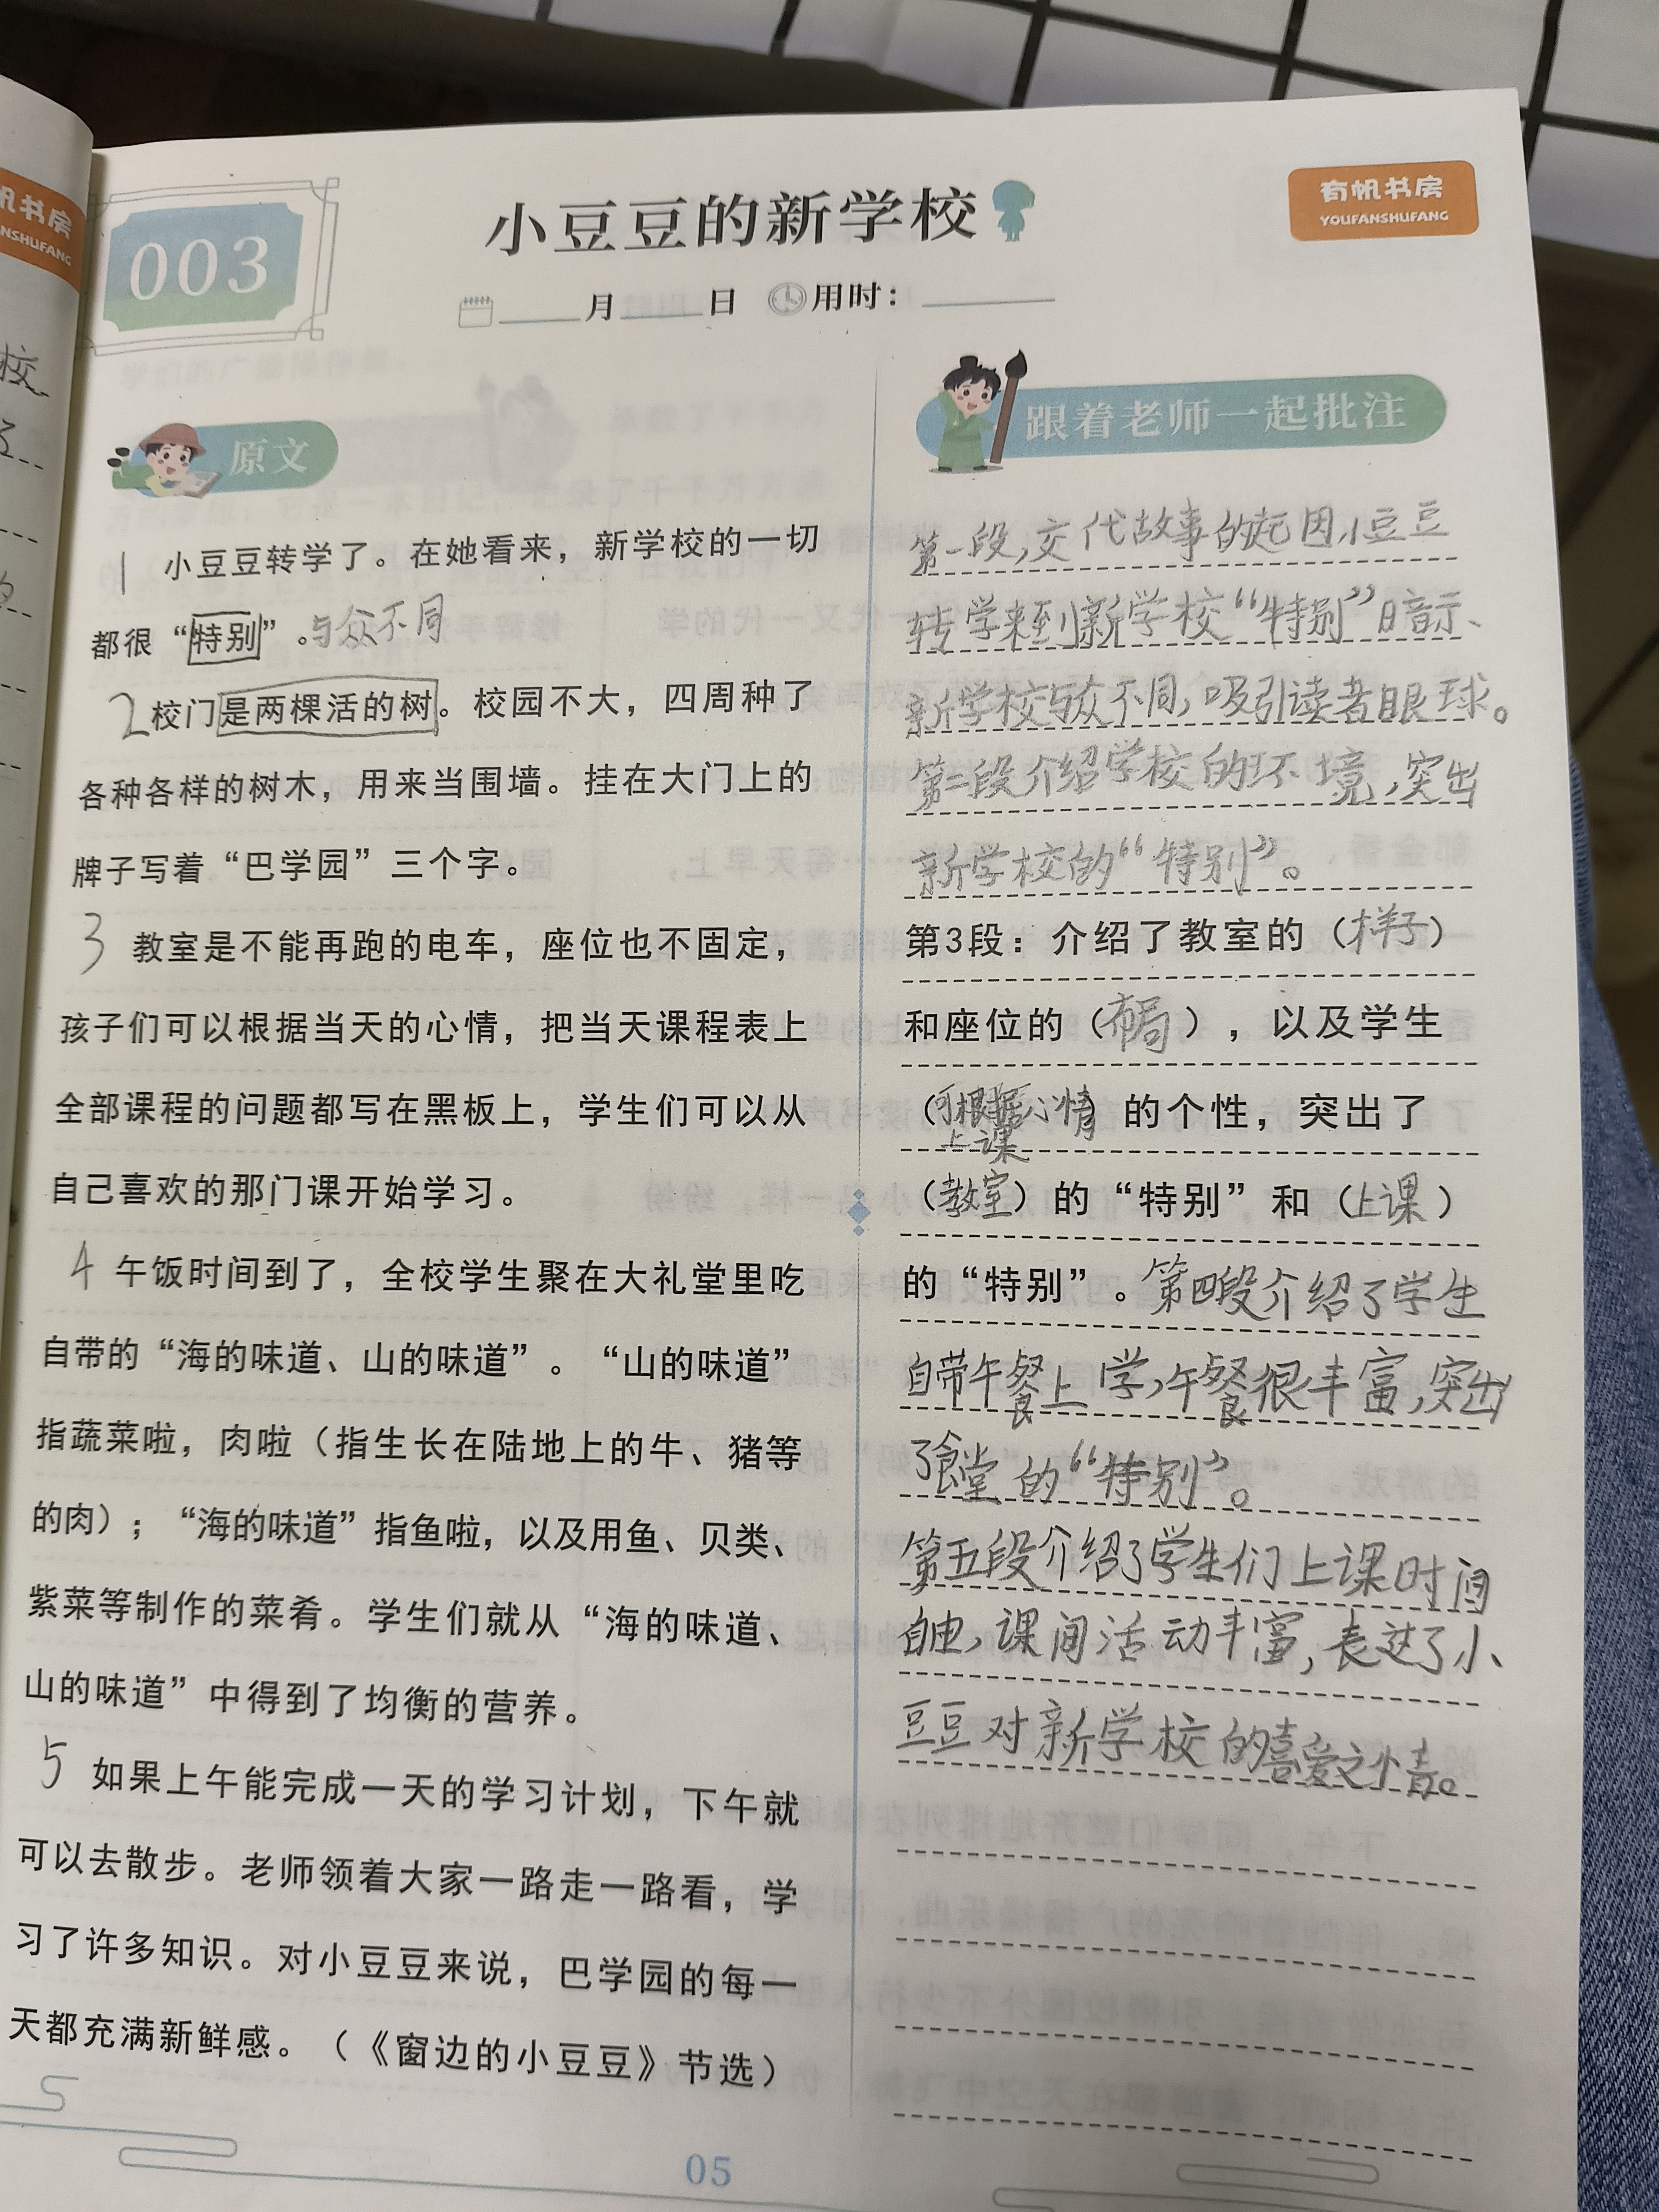 003
小豆豆的新学校
有帆书房
YOUFANSHUFANG
帆书房
NSHUFANG
校
月 日 用时：
原文
1 小豆豆转学了。在她看来，新学校的一切
都很“特别”。与众不同
2校门是两棵活的树。校园不大，四周种了
各种各样的树木，用来当围墙。挂在大门上的
牌子写着“巴学园”三个字。
3 教室是不能再跑的电车，座位也不固定，
孩子们可以根据当天的心情，把当天课程表上
全部课程的问题都写在黑板上，学生们可以从
自己喜欢的那门课开始学习。
4 午饭时间到了，全校学生聚在大礼堂里吃
自带的“海的味道、山的味道”。“山的味道”
指蔬菜啦，肉啦（指生长在陆地上的牛、猪等
的肉）；“海的味道”指鱼啦，以及用鱼、贝类、
紫菜等制作的菜肴。学生们就从“海的味道、
山的味道”中得到了均衡的营养。
5 如果上午能完成一天的学习计划，下午就
可以去散步。老师领着大家一路走一路看，学
习了许多知识。对小豆豆来说，巴学园的每一
天都充满新鲜感。（《窗边的小豆豆》节选）
跟着老师一起批注
第一段，交代故事的起因，小豆豆
转学来到新学校“特别”暗示、
新学校与众不同，吸引读者眼球。
第二段介绍学校的环境，突出
新学校的“特别”。
第3段：介绍了教室的（样子）
和座位的（布局），以及学生
（可根据心情上课）的个性，突出了
（教室）的“特别”和（上课）
的“特别”。第四段介绍了学生
自带午餐上学，午餐很丰富，突出
了食堂的“特别”。
第五段介绍了学生们上课时间
自由，课间活动丰富，表达了小
豆豆对新学校的喜爱之情。
05